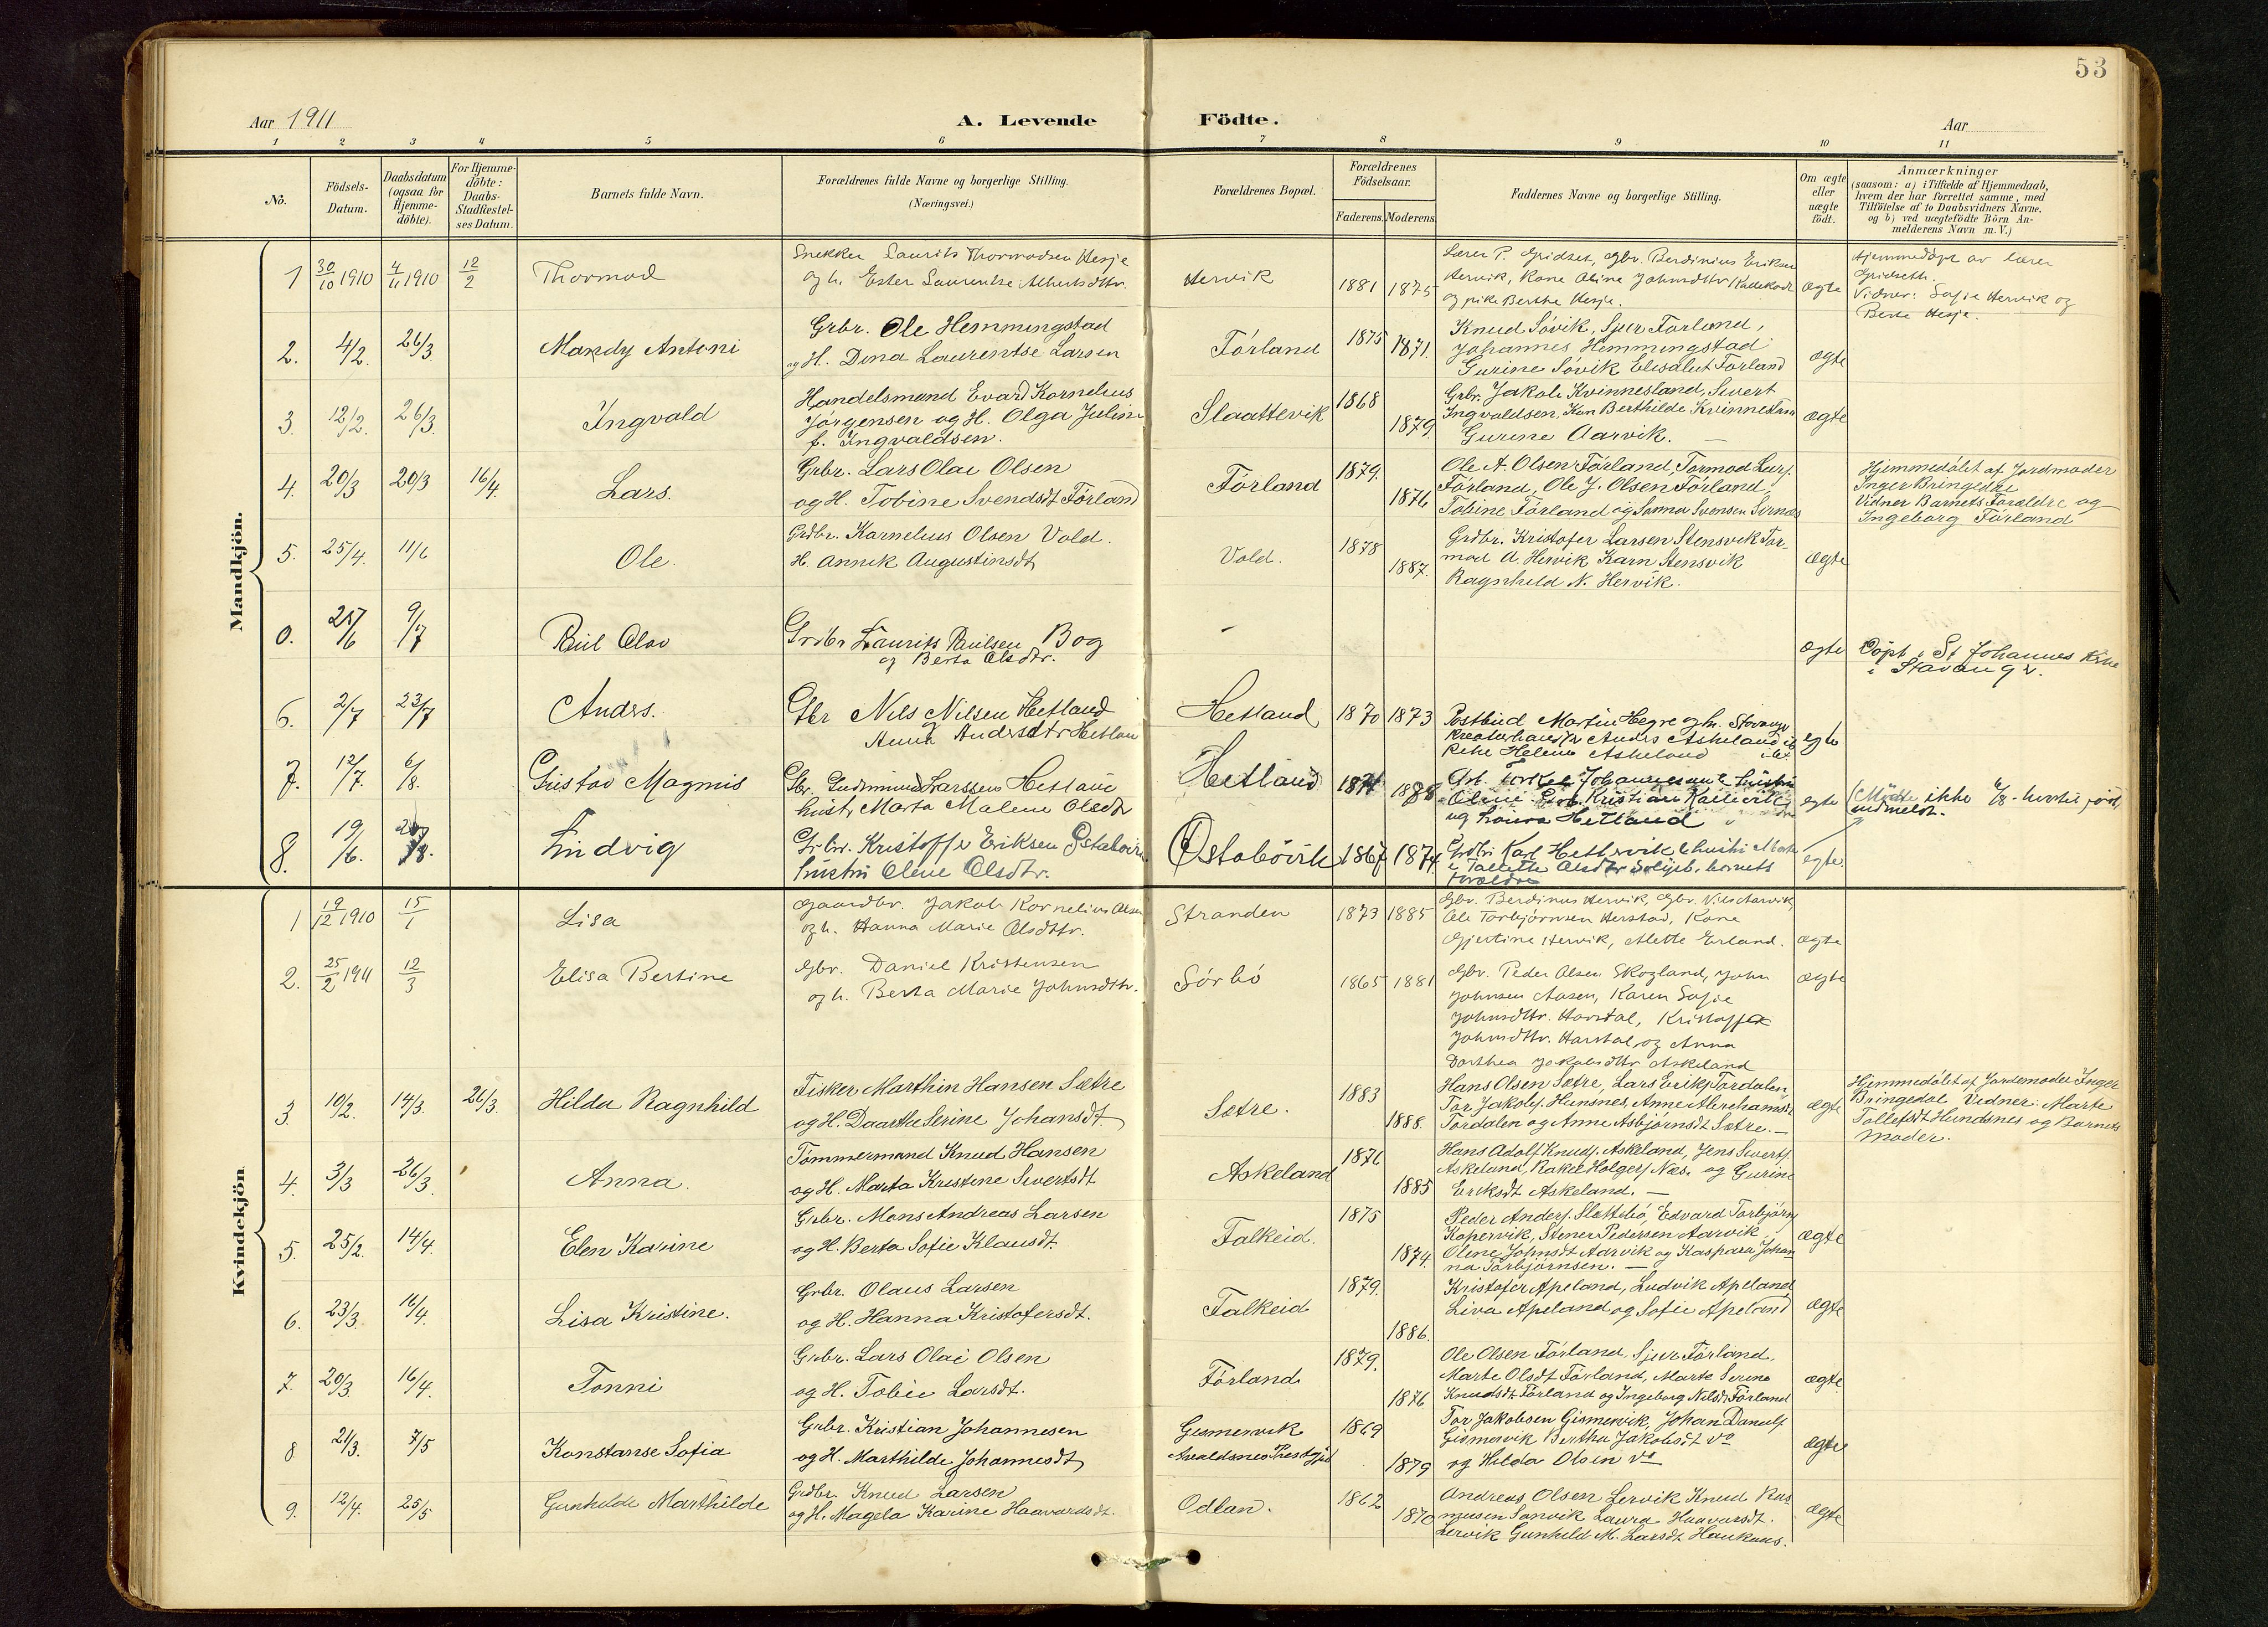 53
Aar 1911
A. Levende Födte.
Aar
1 2 3 4 5 6 7 8 9 10 11
No.
Födsels-
Datum.
Daabsdatum
(ogsaa for
Hjemme-
döbte).
For Hjemme-
döbte:
Daabs-
Stadfæstel-
ses Datum.
Barnets fulde Navn.
Forældrenes fulde Navne og borgerlige Stilling.
(Næringsvei.)
Forældrenes Bopæl.
Forældrenes
Födselsaar.
Faderens. Moderens.
Faddernes Navne og borgerlige Stilling.
Om ægte
eller
uægte
födt.
Anmærkninger
(saasom: a) i Tilfælde af Hjemmedaab,
hvem der har forrettet samme, med
Tilföielse af to Daabsvidners Navne,
og b) ved uægtefödte Börn An-
melderens Navn m. V.)
Mandkjön.
1 30/10 1910 4/11 1910 12/2 Thormod
Snekker Laurits Thormodsen Hesje
og h. Ester Laurentse Albertsdttr.
Hervik 1881 1875
Lærer P. Gridset, Gbr. Berdinius Eriksen
Hervik, Kone Oline Johnsdttr
og pike Berthe Hesje.
ægte
Hjemmedöpt av lærer
Gridseth.
Vidner: Sofie Hervik og
Berte Hesje.
2. 4/2. 26/3. Mandy Antoni
Grbr. Ole Hemmingstad
og H. Dina Laurentse Larsen
Förland 1875 1871.
Knud Sövik, Sjur Förland,
Johannes Hemmingstad
Gurine Sövik Elisabet Förland
ægte
3. 12/2. 26/3. Ingvald
Handelsmand Evard Kornelius
Jörgensen og H. Olga Juline
f. Ingvaldsen.
Slaattevik 1868 1879.
Grbr. Jakob Kvinnesland, Sivert
Ingvaldsen, Kan Berthilde Kvinnesland
Gurine Aarvik. —
ægte
4. 20/3 20/3 16/4. Lars.
Grbr. Lars Olai Olsen
og H. Tobine Svendsdt Förland
Förland 1879. 1876
Ole A. Olsen Förland, Tormod Lars.
Förland, Ole J. Olsen Förland,
Tobine Förland og Sanna Svensen
Hjemmedöbt af Jordmoder
Inger Bringedal
Vidner Barnets Forældre og
Ingeborg Förland
5. 25/4. 11/6 Ole.
Grdbr. Kornelius Olsen Vold.
H. Annik Augustinsdt
Vold. 1878 1887.
Grdbr. Kristofer Larsen Stensvik Tor-
mod A. Hervik Karn Stensvik
Ragnhild N. Hervik.
ægte
0. 25/6 9/7 Paul Olav
Grdbr Laurits Paulsen Bog
og Berta Olsdtr.
ægte
Döpt i St Johannes Kirke
i Stavanger.
6. 2/7 23/7 Anders.
Gbr Nils Nilsen Hetland
og Anna Andersdtr Hetland
Hetland 1870 1873
Postbud Martin Hegre og h. Stavanger
Anders Askeland
Pike Helene Askeland ibd.
egte
7. 12/7. 6/8. Gustav Magnus
Gbr. Gudmund Larssen Hetland
hustr Marta Malene Olsdtr
Hetland
Kristian
og Laura Hetland
egte
Mödte ikke 6/8
indmeldt.
8. 19/6. Ludvig
Grbr. Kristoffer Eriksen Östabövik
hustru Olene Olsdtr.
Östabövik 1867 1874.
Grdbr. Karl Hettervik
barnets
forældre
egte.
Kvindekjön
1 19/12 1910 15/1 Lisa
Gaardbr. Jakob Kornelius Olsen
og h. Hanna Marie Olsdttr.
Stranden 1873 1885
Gbr. Berdinus Hervik, Gbr. Nils Aarvik,
Ole Torbjörnsen Herstad, Kone
Gjertine Hervik, Alette Erland.
ægte
2. 25/2 1911 12/3 Elisa Bertine
Gbr. Daniel Kristensen
og h. Berta Marie Johnsdttr.
Sörbö 1865 1881
Gbr. Peder Olsen Skogland, John
Johnsen Aasen, Karen Sofie
Johnsdttr. Harstal, Kristoffer
Johnsdttr. Harstal, og Anna
Dorthea Jakobsdttr Askeland
ægte
3. 10/2. 14/3. 26/3. Hilda Ragnhild
Fisker Marthin Hansen Sætre
og H. Daarthe Serine Johansdt.
Sætre. 1883 1888.
Hans Olsen Sætre, Lars Eriks. Tordalen,
Tor Jakobs. Hunsnes, Anne
Tordalen og Anne Asbjörnsdt Sætre. —
ægte
Hjemmedöbt af Jordemoder Inger
Bringedal Vidner: Marte
Tollefsdt Hundsnes og Barnets
Moder.
4. 3/3 26/3. Anna.
Tömmermand Knud Hansen
og H. Marta Kristine Sivertsdt
Askeland 1876 1885
Hans Adolf Knuds. Askeland, Jens Siverts.
Askeland, Rakel Holgers. Næs. og Gurine
Eriksdt Askeland. —
5. 25/2. 14/4. Elen Karine
Grbr. Mons Andreas Larsen
og H. Berta Sofie Klausdt.
Falkeid. 1875 1874.
Peder Anders. Slettebö, Edvard Torbjörns.
Kopervik, Stener Pedersen Aarvik,
Oline Johnsdt Aarvik og Kaspara Johan-
na Torbjörnsen. —
ægte
6. 23/3. 16/4. Lisa Kristine.
Grbr. Olaus Larsen
og H. Hanna Kristofersdt.
Falkeid 1879. 1886.
Kristofer Apeland, Ludvik Apeland
Liva Apeland og Sofie Apeland
ægte
7. 20/3 16/4. Tonni
Grbr. Lars Olai Olsen
og H. Tobie Larsdt.
Förland 1879. 1876
Ole Olsen Förland, Sjur Förland,
Marte Olsdt Förland, Marte Serine
Knudsdt Förland og Ingeborg Nilsdt Förland
ægte
8 21/3. 7/5 Konstanse Sofia
Grbr. Kristian Johannesen
og H. Marthilde Johannesdt
Gismervik
Avaldsnes Prestgjeld 1869 1879
Tor Jakobsen Gismervik, Johan Daniels.
Gismervik Bertha Jakobsdt do
og Hilda Olsen do
ægte
9. 12/4. 25/5 Gunhilde Marthilde
Grdbr. Knud Larsen
og H. Magela Karine Haavardsdt.
Odlan. 1862 1870
Andreas Olsen Lervik Knud Ras
musen Sanvik Laura Haavarsdt.
Lervik Gunhild M. Larsdt Haukaas.
ægte